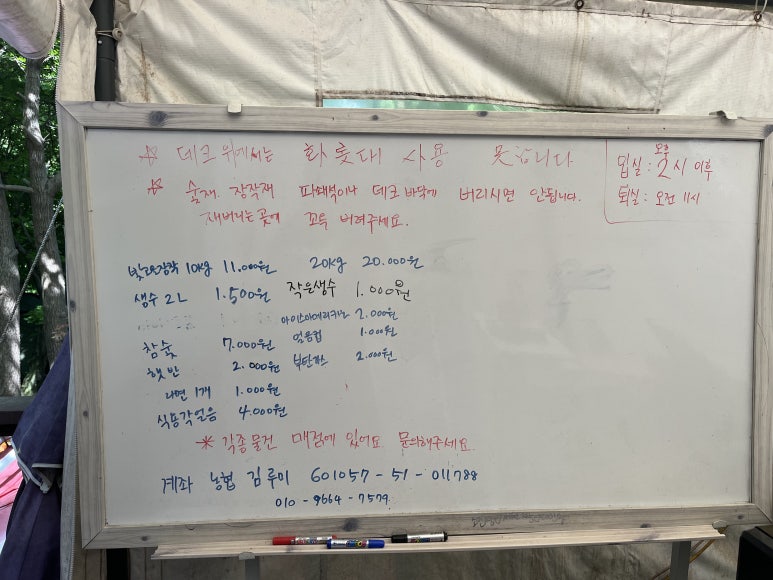 ☆ 데크 위에서는 화롯대 사용 못합니다
☆ 숯재. 장작재 파쇄석이나 데크 바닥에 버리시면 안됩니다.
재버리는곳에 꼬옥 버려주세요.
오후
입실 : 2시 이후
퇴실 : 오전 11시
10kg 11.000원 20kg 20.000원
생수 2L 1.500원 작은생수 1.000원
아이스아메리카노 2.000원
참숯 7.000원 얼음컵 1.000원
햇반 2.000원 부탄가스 2.000원
라면 1개 1.000원
식용각얼음 4.000원
* 각종물건 매점에 있어요 문의해주세요.
계좌 농협 김루미 601057-51-011788
010-9664-7579